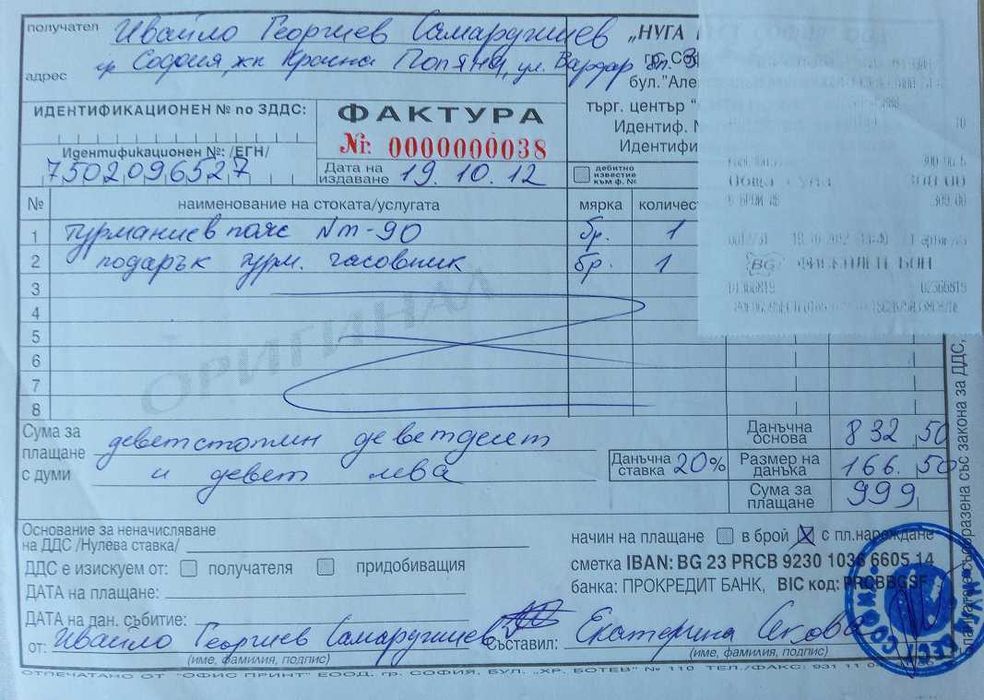 получател Ивайло Георгиев Самарджиев
адрес гр София, жк Красна Поляна, ул. Вардар бл. 3
„НУГА
гр. Со
бул. "Але
търг. център "
Идентиф. N
Идентифи
ИДЕНТИФИКАЦИОНЕН № по ЗДДС:
Идентификационен №: /ЕГН/
7502096527
ФАКТУРА
№: 0000000038
Дата на издаване 19.10.12
дебитно известие към ф. №
№ наименование на стоката/услугата мярка количест
1 турманиев пояс NM-90 бр. 1
2 подарък турм. часовник бр. 1
3
4
5
6
7
8
ОРИГИНАЛ
ОБЩА СУМА
В БРОЙ
ФИСКАЛЕН БОН
BG
Сума за плащане с думи деветстотин деветдесет
и девет лева
Данъчна основа 832,50
Данъчна ставка 20% Размер на данъка 166.50
Сума за плащане 999
Основание за неначисляване
на ДДС /Нулева ставка/
ДДС е изискуем от: получателя придобиващия
ДАТА на плащане:
ДАТА на дан. събитие:
начин на плащане в брой с пл.нареждане
сметка IBAN: BG 23 PRCB 9230 1036 6605 14
банка: ПРОКРЕДИТ БАНК, BIC код: PRCBBGSF
от: Ивайло Георгиев Самарджиев Съставил: Екатерина Секова
(име, фамилия, подпис) (име, фамилия, подпис)
ОТПЕЧАТАНО ОТ "ОФИС ПРИНТ" ЕООД, ГР. СОФИЯ, БУЛ. „ХР. БОТЕВ" № 110 ТЕЛ./ФАКС: 931 11 0
СОФИЯ
образена със закона за ДДС,